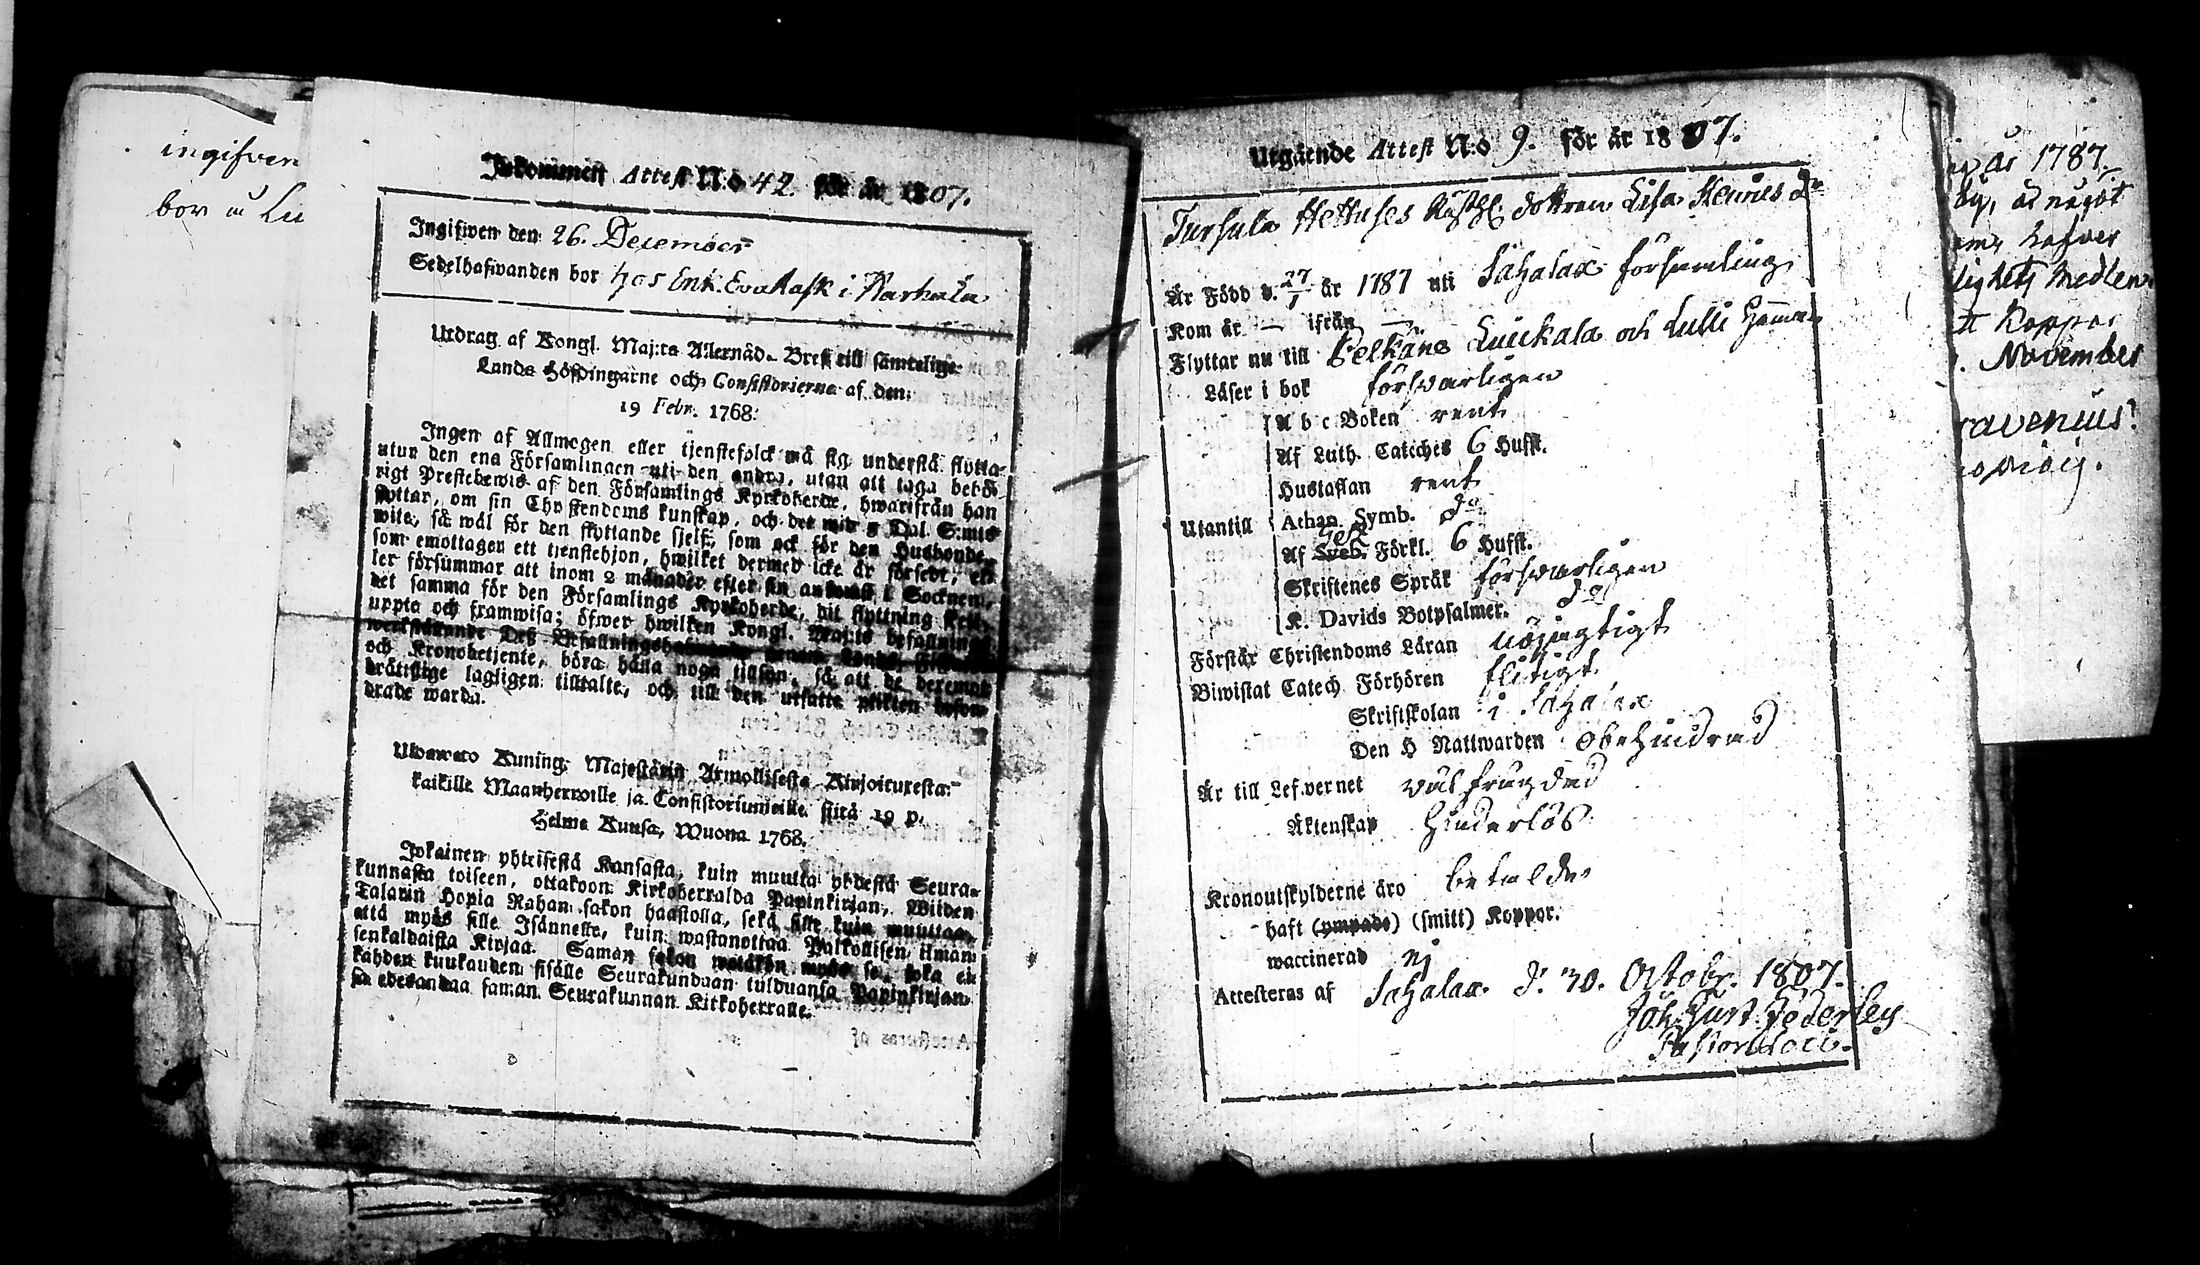 ingifven
bor u Lu
Inkommen Attest N:o 42. för år 1807.
Ingifwen den 26. December
Sedelhafwanden bor hos Enk. Eva Rask i Karhula
Utdrag af Kongl. Maj:ts Allernåd. Bref till samtelige
Lands Höfdingarne och Consistorierne af den
19 Febr. 1768.
Ingen af Allmogen eller tjenstefolck må sig understå flytta
utur den ena Församlingen uti den andra, utan att taga behö-
rigt Prestebewis af den Församlings Kyrkoherde, hwarifrån han
flyttar, om sin Christendoms kunskap, och det wid 5 Dal. S:mts
wite, så wäl för den flyttande sjelf, som ock för den Husbonde,
som emottager ett tjenstehjon, hwilket dermed icke är försedt, el-
ler försummar att inom 2 månader efter sin ankomst i Socknen,
det samma för den Församlings Kyrkoherde, dit flyttning skett,
uppte och framwisa; öfwer hwilken Kongl. Maj:ts befallnings
werkställande Dess Befallningshafwande
och Kronobetjente, böra hålla noga tillsyn, så att de deremot
brättslige lagligen tilltalte, och till den utsatte plikten befor-
drade warda.
Uloswето Kuning. Majestätin Armollisesta Kirjoituxesta
kaikille Maanherroille ja Consistoriumeille siitä 19 p.
Helme Kuusa, Wuona 1768.
Jokainen yhteisestä Kansasta, kuin muutta yhdestä Seura-
kunnasta toiseen, ottakoon Kirkoherralda Papinkirjan, Wiiden
Talarin Hopia Rahan sakon haastolla, sekä sille kuin muuttaa,
että myös sille Isännelle, kuin wastanottaa Palkollisen ilman
senkaldaista Kirjaa. Saman sakon wetäkön myös se, joka ei
kahden kuukauden sisälle Seurakundaan tulduansa Papinkirjan-
sa edesandaa saman Seurakunnan Kirkoherralle.
Utgående Attest N:o 9. för år 1807.
Tursula Hettuses dottren Lisa Henrics dr
Är Född d. 27/1 år 1787 uti Sahalax församling
Kom år — ifrån —
Flyttar nu till Pelkäne Luickala och Lulli
Läser i bok försvarligen
A b c Boken rent
Af Luth. Cateches 6 Hufst.
Hustaflan rent
Utantill Athan. Symb. do
Af Sveb. Förkl. 6 Hufst.
Skriftenes Språk försvarligen
K. Davids Botpsalmer. do
Förstår Christendoms Läran nöjagtigt
Biwistat Catech Förhören flitigt
Skriftskolan i Sahalax
Den H Nattwarden obehindrad
Är till Lefvernet välfrägdad
Äktenskap hinderlös
Kronoutskylderne äro betalde
haft (ympade) (smitt) Koppor.
waccinerad ej
Attesteras af Sahalax d. 30. Octobr. 1807.
Joh. Gust. Federley
Pastor Loci.
år 1787.
by, as något
hafver
lighets Medlem
Koppor
. November
ravenius